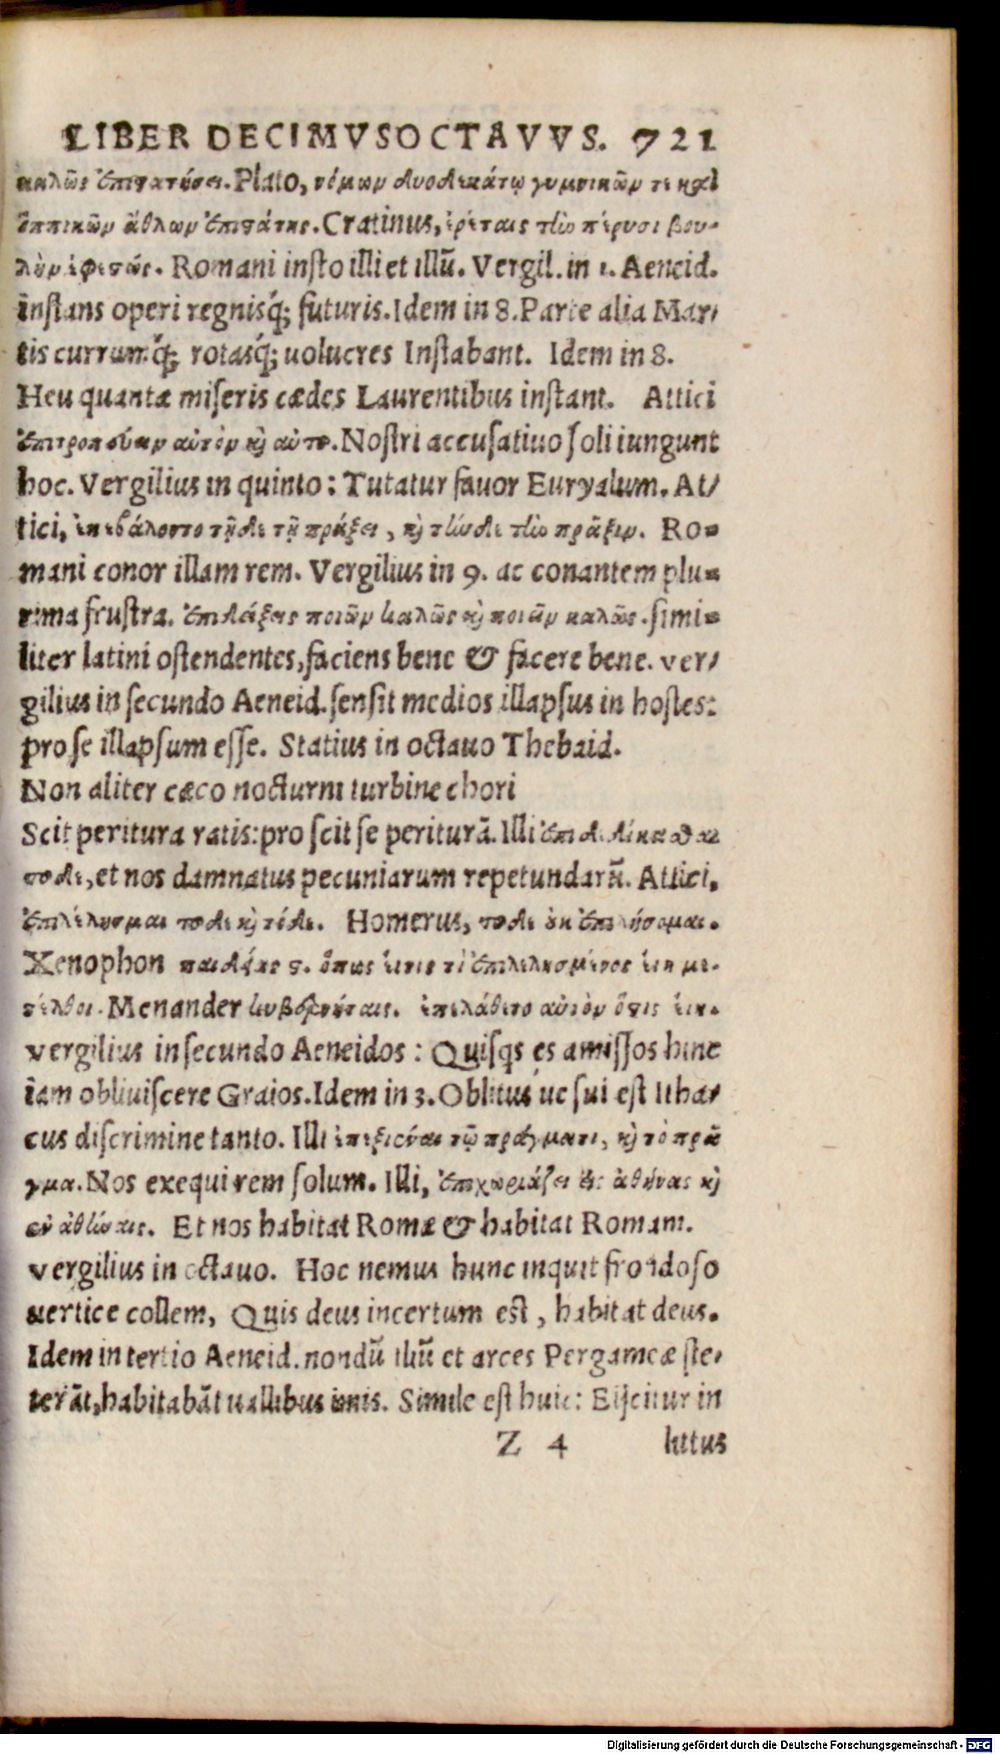 LIBER DECIMVSOCTAVVS. 721
καλῶς ἐπιστατήσει. Plato, νόμων δυοδεκάτῳ γυμνικῶν τε καὶ
ἱππικῶν ἄθλων ἐπιστάτης. Cratinus, τὴν πέρυσι βου-
λὴν ἐφεστώς. Romani insto illi et illũ. Vergil. in 1. Aeneid.
Instans operi regnisq́; futuris. Idem in 8. Parte alia Mar/
tis currumq́; rotasq́; uolucres Instabant. Idem in 8.
Heu quantæ miseris cædes Laurentibus instant. Attici
ἐπιτροπεύειν αὐτὸν κὶ αὐτῷ. Nostri accusatiuo soli iungunt
hoc. Vergilius in quinto: Tutatur fauor Euryalum. At/
tici, τῇδε τῇ πράξει, κὶ τήνδε τὴν πρᾶξιν. Ro-
mani conor illam rem. Vergilius in 9. ac conantem plu-
rima frustra. ἐπιδείξεις ποιῶν καλῶς κὶ ποιῶν καλῶς. simi-
liter latini ostendentes, faciens bene & facere bene. ver/
gilius in secundo Aeneid. sensit medios illapsus in hostes:
pro se illapsum esse. Statius in octauo Thebaid.
Non aliter cæco nocturni turbine chori
Scit peritura ratis: pro scit se periturã. Illi
τοδε, et nos damnatus pecuniarum repetundarũ. Attici,
ἐπιλέλησμαι τοῦδε κὶ τόδε. Homerus, τοῦδε ἐκ ἐπιλήσομαι.
Xenophon παιδείας ὅπως τὶ ἐπιλελησμένος με-
τέλθοι. Menander κυβερνήταις. ἐπελάθετο αὐτὸν ὅστις
vergilius in secundo Aeneidos: Quisqs es amissos hinc
iam obliuiscere Graios. Idem in 3. Oblitus ue sui est Itha/
cus discrimine tanto. Illi ἐπεξιέναι τῷ πράγματι, κὶ τὸ πρᾶ
γμα. Nos exequi rem solum. Illi, ἐπιχωριάζει ἀθήνας κὶ
ἐν ἀθήναις. Et nos habitat Romæ & habitat Romam.
vergilius in octauo. Hoc nemus hunc inquit frondoso
uertice collem, Quis deus incertum est, habitat deus.
Idem in tertio Aeneid. nondũ iliũ et arces Pergameæ ste/
terãt, habitabãt uallibus imis. Simile est huic: Eijcitur in
Z 4 littus
Digitalisierung gefördert durch die Deutsche Forschungsgemeinschaft - DFG